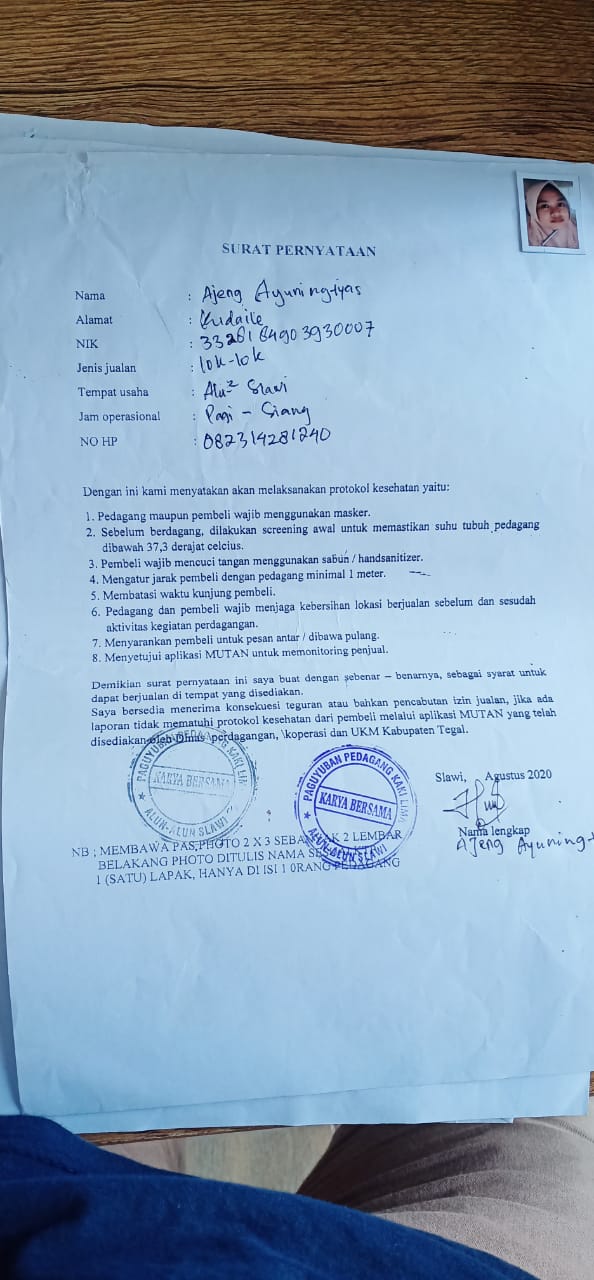 SURAT PERNYATAAN
Nama : Ajeng Ayuningtyas
Alamat : Kudaile
NIK : 3328164903930007
Jenis jualan : lok-lok
Tempat usaha : Alu² Slawi
Jam operasional : Pagi - Siang
NO HP : 082314281240
Dengan ini kami menyatakan akan melaksanakan protokol kesehatan yaitu:
1. Pedagang maupun pembeli wajib menggunakan masker.
2. Sebelum berdagang, dilakukan screening awal untuk memastikan suhu tubuh pedagang
dibawah 37,3 derajat celcius.
3. Pembeli wajib mencuci tangan menggunakan sabun / handsanitizer.
4. Mengatur jarak pembeli dengan pedagang minimal 1 meter.
5. Membatasi waktu kunjung pembeli.
6. Pedagang dan pembeli wajib menjaga kebersihan lokasi berjualan sebelum dan sesudah
aktivitas kegiatan perdagangan.
7. Menyarankan pembeli untuk pesan antar / dibawa pulang.
8. Menyetujui aplikasi MUTAN untuk memonitoring penjual.
Demikian surat pernyataan ini saya buat dengan sebenar – benarnya, sebagai syarat untuk
dapat berjualan di tempat yang disediakan.
Saya bersedia menerima konsekuesi teguran atau bahkan pencabutan izin jualan, jika ada
laporan tidak mematuhi protokol kesehatan dari pembeli melalui aplikasi MUTAN yang telah
disediakan oleh Dinas \perdagangan, \koperasi dan UKM Kabupaten Tegal.
PAGUYUBAN PEDAGANG KAKI LIMA
KARYA BERSAMA
ALUN-ALUN SLAWI
PAGUYUBAN PEDAGANG KAKI LIMA
KARYA BERSAMA
ALUN-ALUN SLAWI
Slawi, Agustus 2020
Nama lengkap
Ajeng Ayuning-t
NB ; MEMBAWA PAS PHOTO 2 X 3 SEBANYAK 2 LEMBAR
BELAKANG PHOTO DITULIS NAMA
1 (SATU) LAPAK, HANYA DI ISI 1 0RANG PEDAGANG